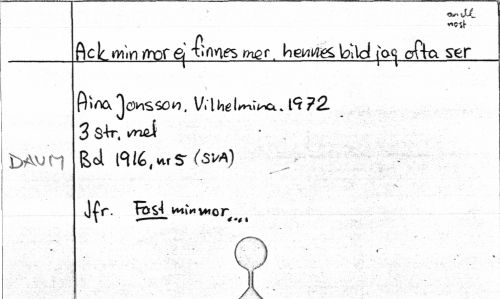 Ack min mor ej finnes mer, hennes bild jag ofta ser
Aina Jonsson, Vilhelmina. 1972
3 str, mel
DAUM Bd 1916, nr 5 (SVA)
Jfr. Fast min mor....